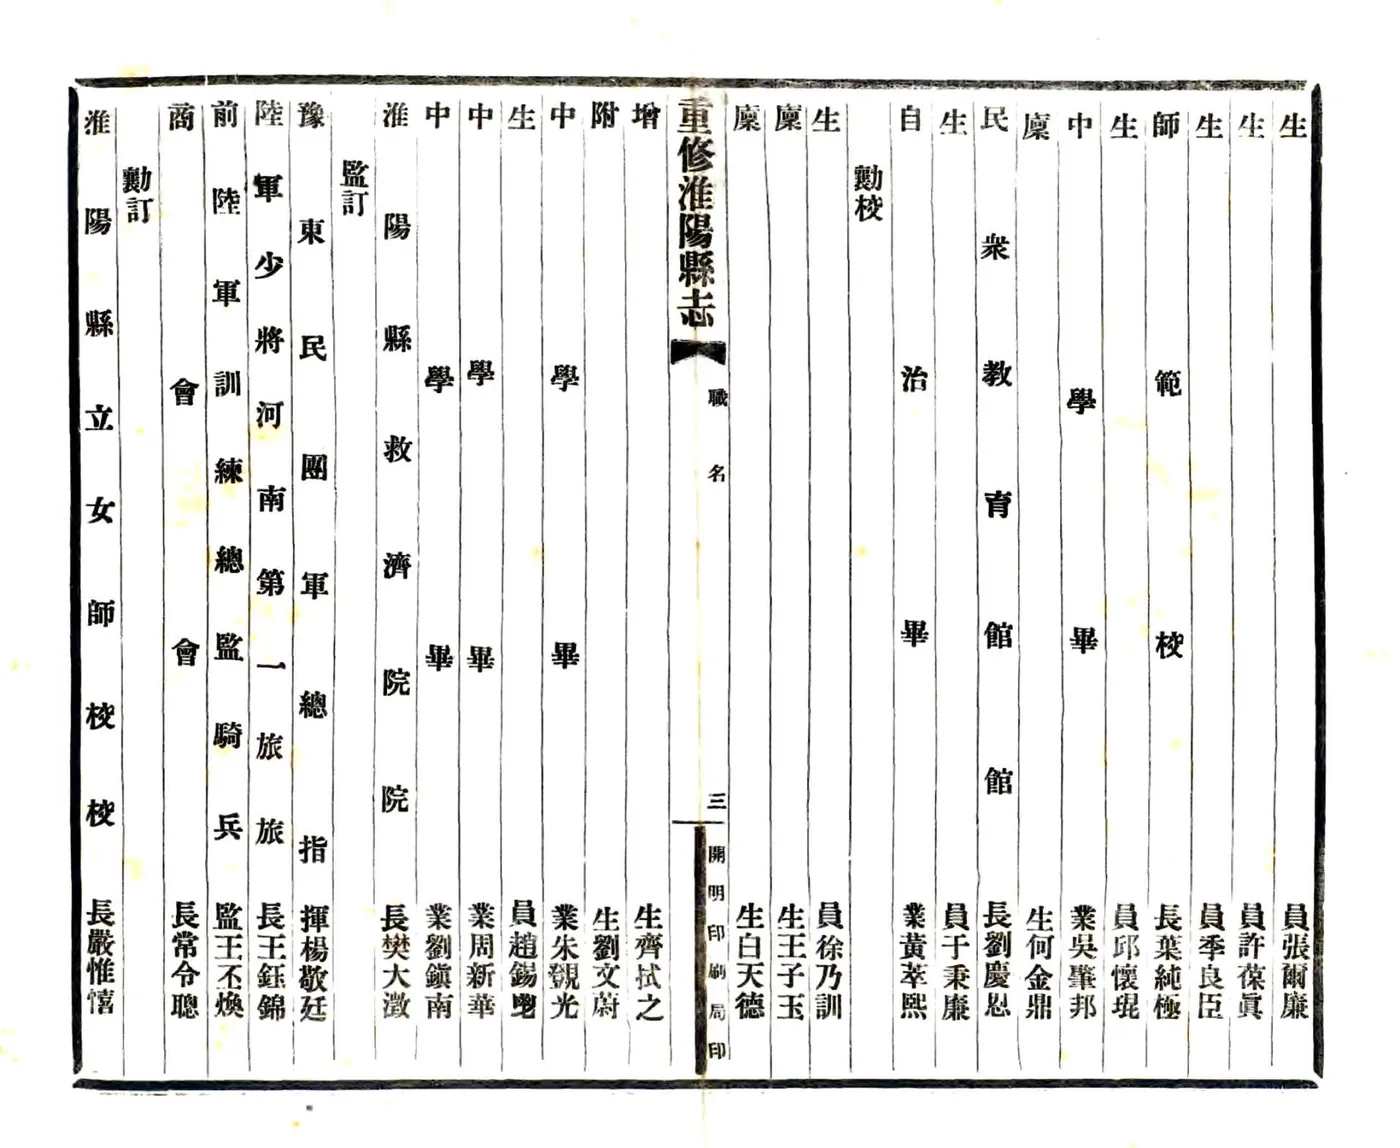 生員張爾廉
生員許葆眞
生員季良臣
師範校長葉純極
生員邱懷琨
中學畢業吳肇邦
廩生何金鼎
民衆教育館館長劉慶恩
生員于秉廉
自治畢業黃萃熙
勷校
生員徐乃訓
廩生王子玉
廩生白天德
重修淮陽縣志
職名
三
開明印刷局印
增生齊拭之
附生劉文蔚
中學畢業朱覲光
生員趙錫
中學畢業周新華
中學畢業劉鎭南
淮陽縣救濟院院長樊大澂
監訂
豫東民團軍總指揮楊敬廷
陸軍少將河南第一旅旅長王鈺錦
前陸軍訓練總監騎兵監王丕煥
商會會長常令聰
勷訂
淮陽縣立女師校校長嚴惟憘